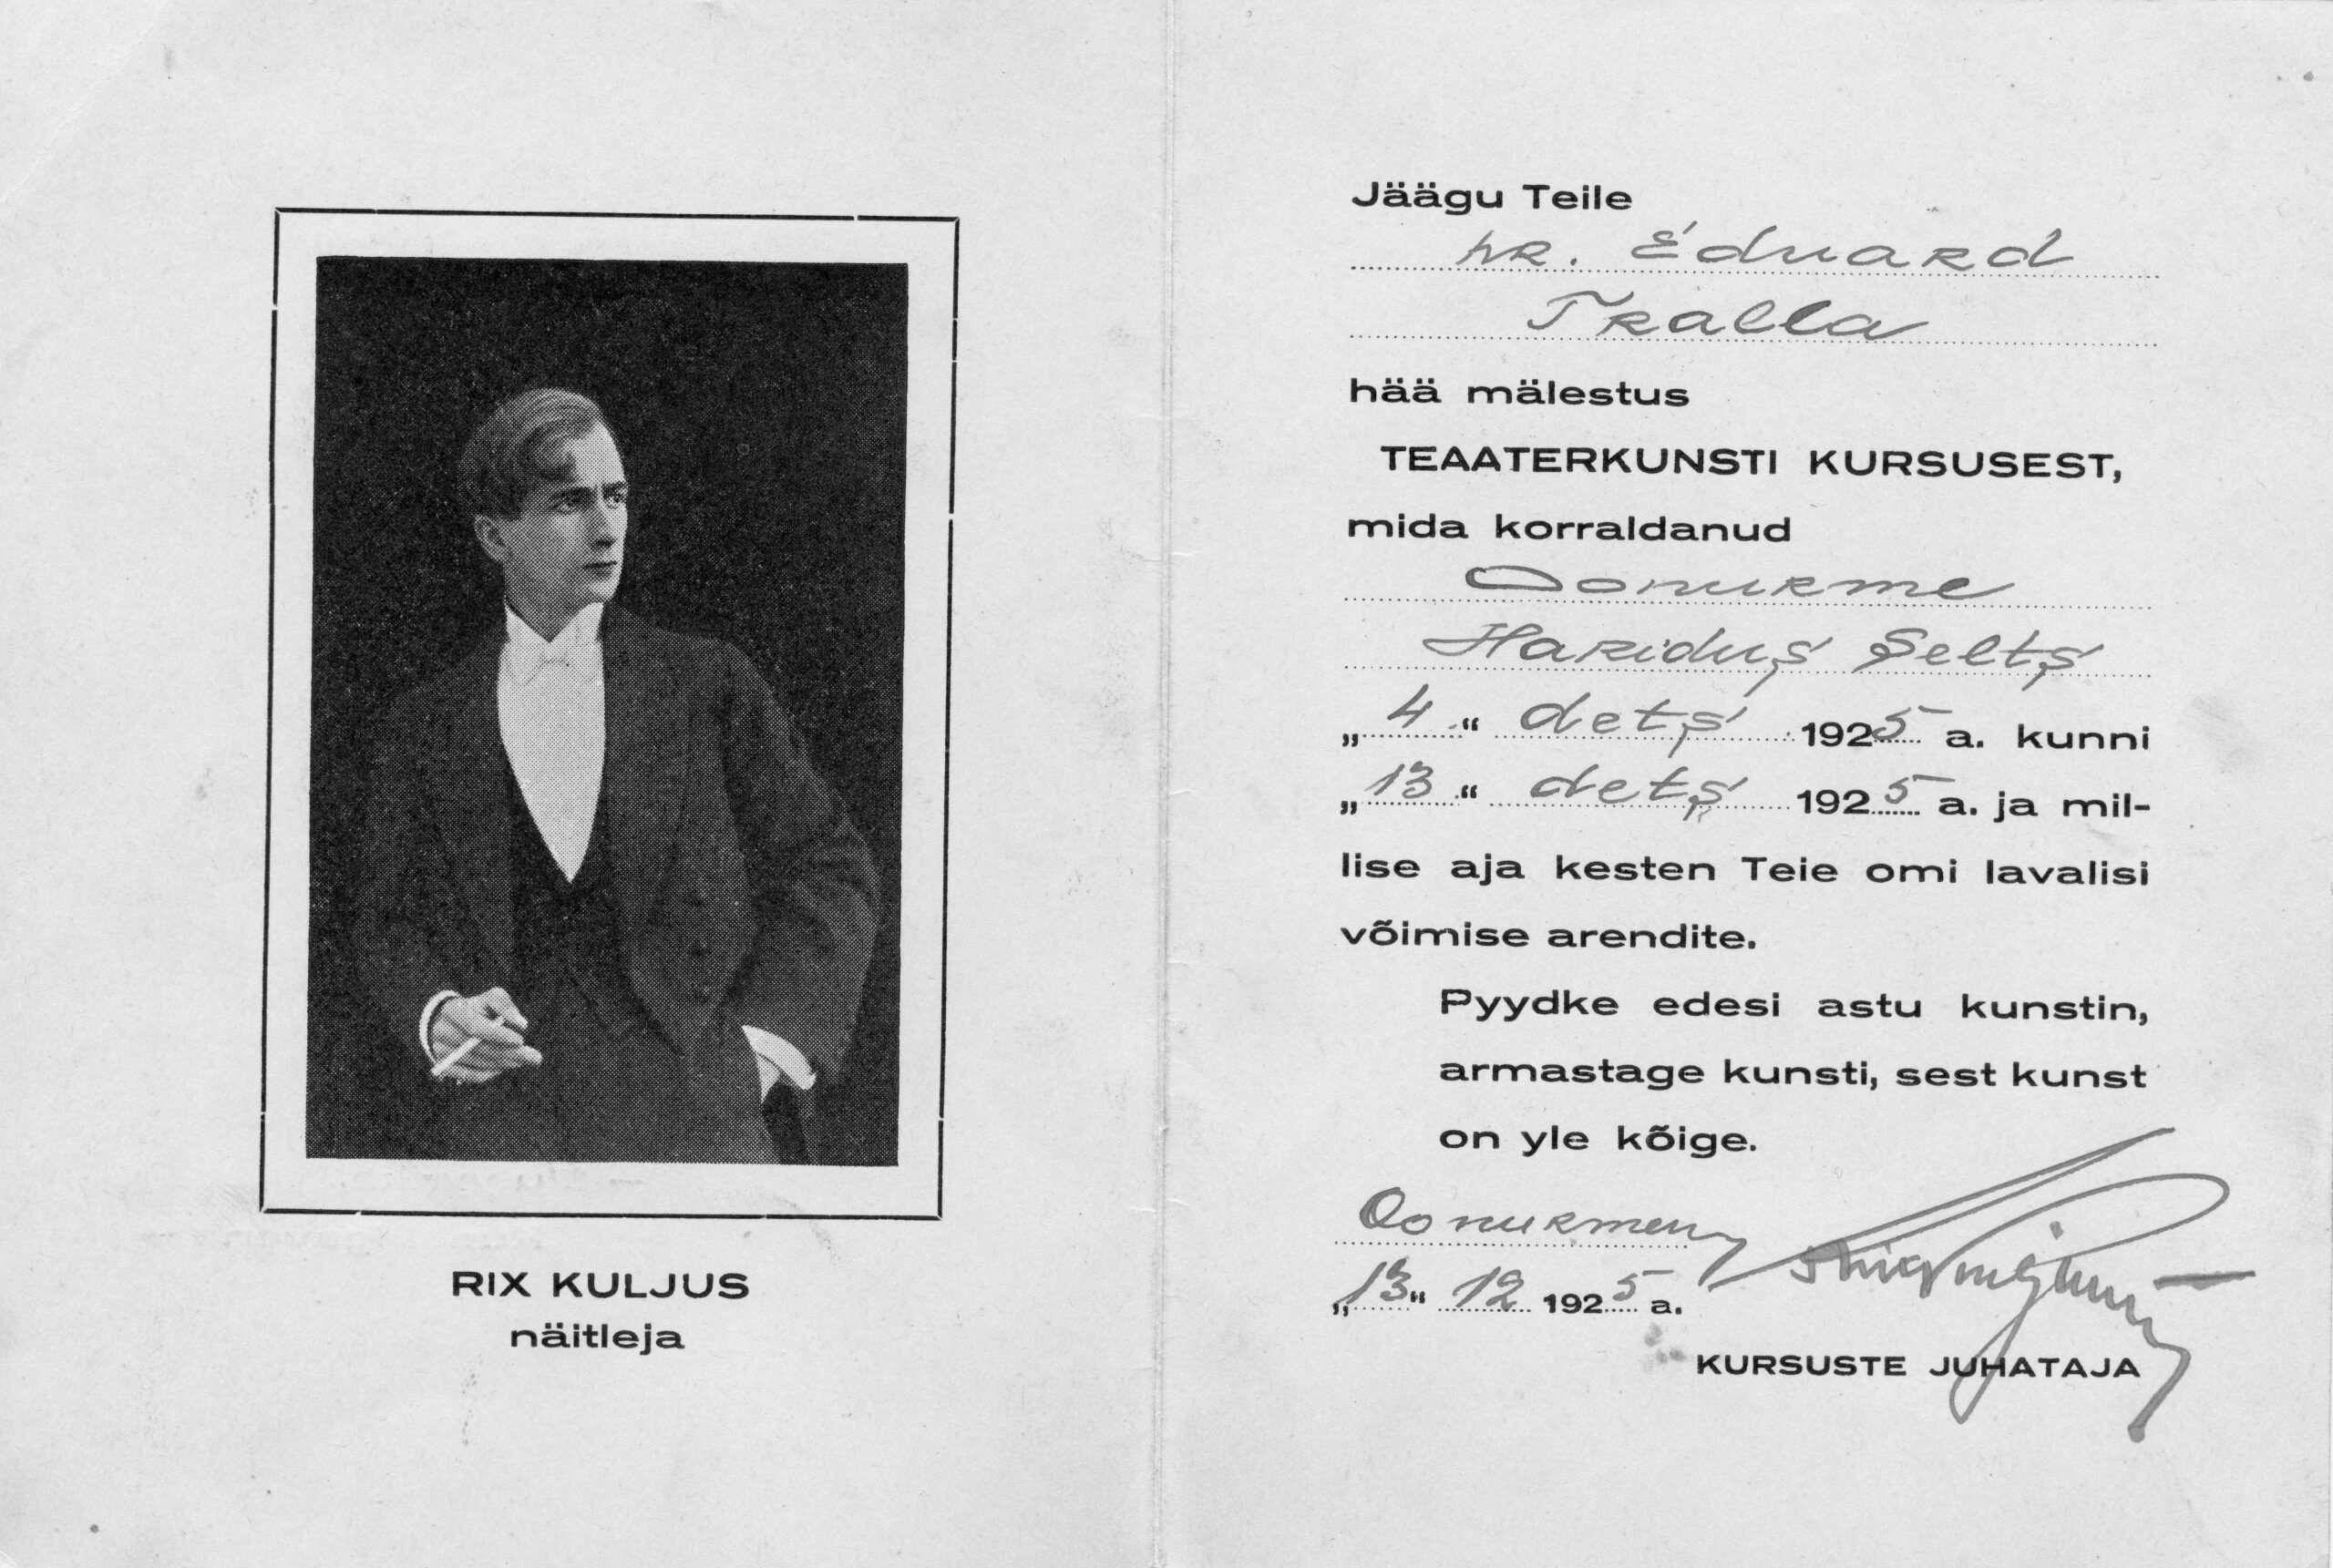 RIX KULJUS
näitleja
Jäägu Teile
hr. Eduard
Tralla
hää mälestus
TEAATERKUNSTI KURSUSEST,
mida korraldanud
Oonurme
Haridus Selts
„4“ dets 1925 a. kunni
„13“ dets 1925 a. ja mil-
lise aja kesten Teie omi lavalisi
võimise arendite.
Pyydke edesi astu kunstin,
armastage kunsti, sest kunst
on yle kõige.
Oonurmen
„13“ 12 1925 a.
KURSUSTE JUHATAJA